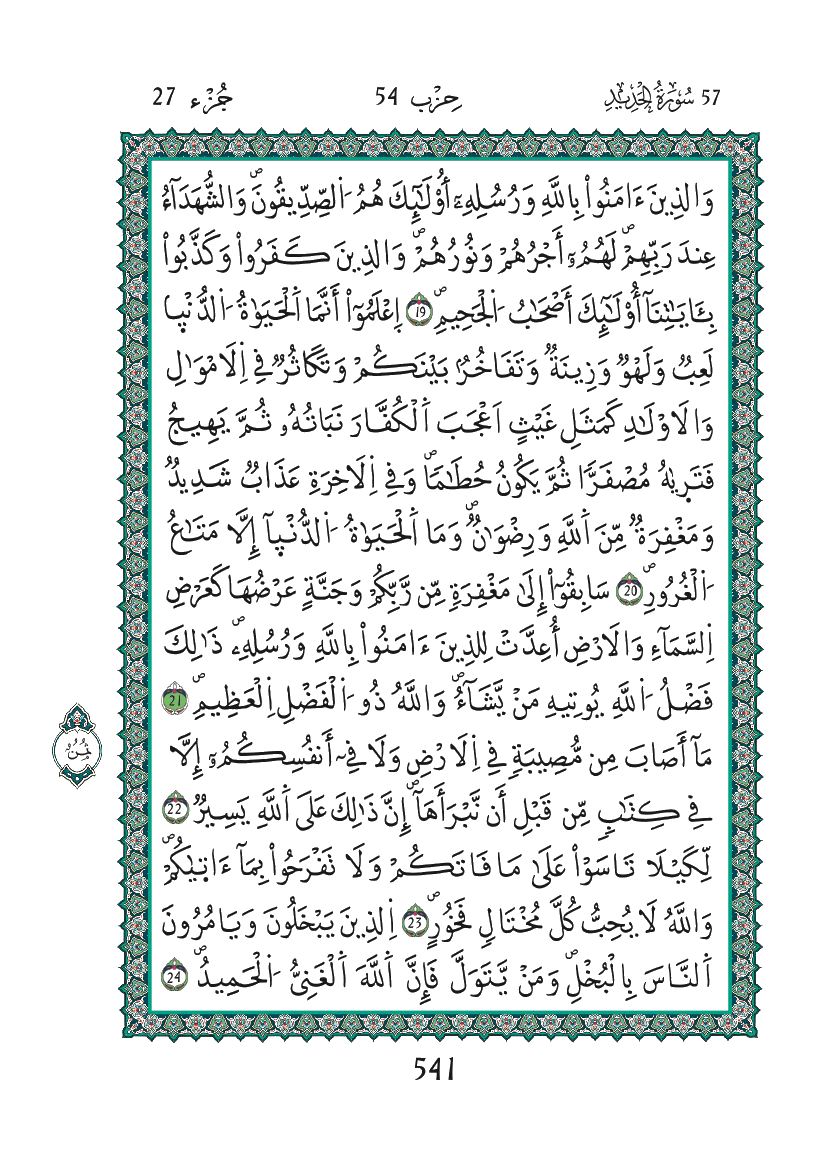 57 سُورَةُ الْحَدِيدِ حِزْب 54 جُزْء 27
وَالذِينَ ءَامَنُواْ بِاللَّهِ وَرُسُلِهِۦٓ أُوْلَٰٓئِكَ هُمُ اُ۬لصِّدِّيقُونَۖ وَالشُّهَدَآءُ
عِندَ رَبِّهِمْۖ لَهُمُۥٓ أَجْرُهُمْ وَنُورُهُمْۖ وَالذِينَ كَفَرُواْ وَكَذَّبُواْ
بِـَٔايَٰتِنَآ أُوْلَٰٓئِكَ أَصْحَٰبُ اُ۬لْجَحِيمِۖ 19 اِ۪عْلَمُوٓاْ أَنَّمَا اَ۬لْحَيَوٰةُ اُ۬لدُّنْي۪ا
لَعِبٞ وَلَهْوٞ وَزِينَةٞ وَتَفَاخُرُۢ بَيْنَكُمْ وَتَكَاثُرٞ فِي اِ۬لَامْوَٰلِ
وَالَاوْلَٰدِ كَمَثَلِ غَيْثٍ اَعْجَبَ اَ۬لْكُفَّارَ نَبَاتُهُۥ ثُمَّ يَهِيجُ
فَتَر۪يٰهُ مُصْفَرّاٗ ثُمَّ يَكُونُ حُطَٰماٗۖ وَفِي اِ۬لَاخِرَةِ عَذَابٞ شَدِيدٞ
وَمَغْفِرَةٞ مِّنَ اَ۬للَّهِ وَرِضْوَٰنٞۖ وَمَا اَ۬لْحَيَوٰةُ اُ۬لدُّنْي۪آ إِلَّا مَتَٰعُ
اُ۬لْغُرُورِۖ 20 سَابِقُوٓاْ إِلَىٰ مَغْفِرَةٖ مِّن رَّبِّكُمْ وَجَنَّةٍ عَرْضُهَا كَعَرْضِ
اِ۬لسَّمَآءِ وَالَارْضِ أُعِدَّتْ لِلذِينَ ءَامَنُواْ بِاللَّهِ وَرُسُلِهِۦۖ ذَٰلِكَ
فَضْلُ اُ۬للَّهِ يُوتِيهِ مَنْ يَّشَآءُۖ وَاللَّهُ ذُو اُ۬لْفَضْلِ اِ۬لْعَظِيمِۖ 21
مَآ أَصَابَ مِن مُّصِيبَةٖ فِي اِ۬لَارْضِ وَلَا فِيٓ أَنفُسِكُمُۥٓ إِلَّا
فِي كِتَٰبٖ مِّن قَبْلِ أَن نَّبْرَأَهَآۖ إِنَّ ذَٰلِكَ عَلَى اَ۬للَّهِ يَسِيرٞ 22
لِّكَيْلَا تَاسَوْاْ عَلَىٰ مَا فَاتَكُمْ وَلَا تَفْرَحُواْ بِمَآ ءَات۪يٰكُمْۖ
وَاللَّهُ لَا يُحِبُّ كُلَّ مُخْتَالٖ فَخُورٍۖ 23 اِ۬لذِينَ يَبْخَلُونَ وَيَامُرُونَ
اَ۬لنَّاسَ بِالْبُخْلِۖ وَمَنْ يَّتَوَلَّ فَإِنَّ اَ۬للَّهَ اَ۬لْغَنِيُّ اُ۬لْحَمِيدُۖ 24
ثُمُنُ
541